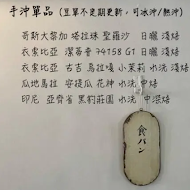 手沖單品 (豆單不定期更新，可冰沖/熱沖)
哥斯大黎加 塔拉珠 聖羅沙 日曬 淺焙
衣索比亞 潔蒂普 74158 G1 日曬 淺焙
衣索比亞 古吉 烏拉嘎 小茉莉 水洗 淺焙
瓜地馬拉 安提瓜 花神 水洗 中焙
印尼 亞齊省 黑莉莊園 水洗 中深焙
食パン